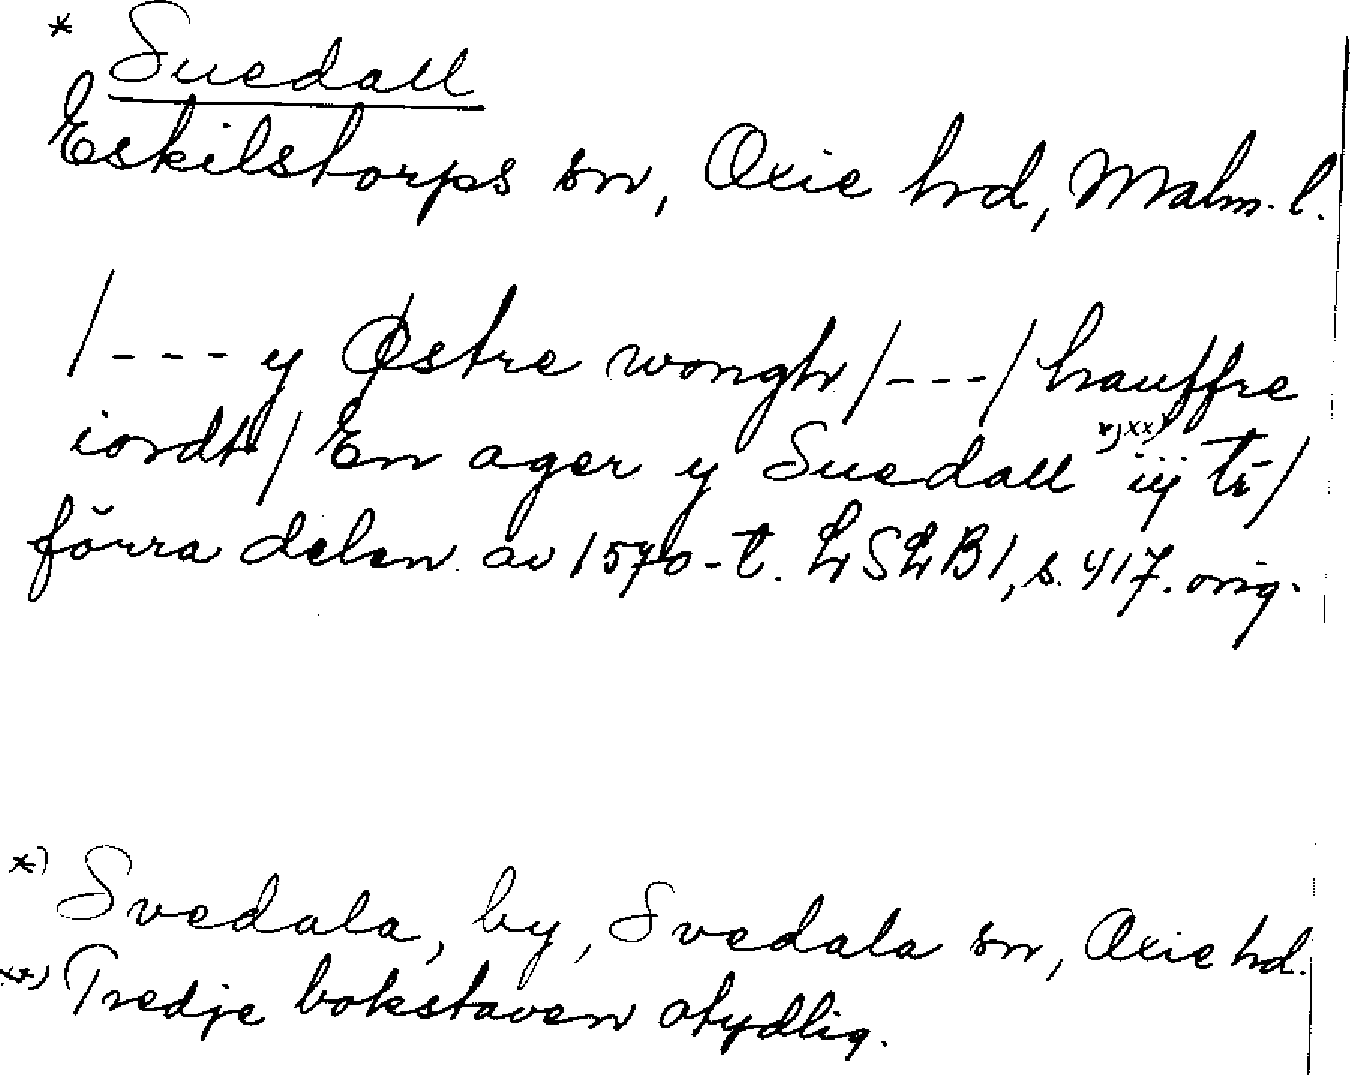 * Suedall
Eskilstorps sn, Oxie hd, Malm. l.
/--- y Østre wongh/---/ hauffre
iordt/ En ager y Suedall *)xx) iij tr/
förra delen av 1570-t. LSLB1, s. 417. orig.
*) Svedala, by, Svedala sn, Oxie hd.
xx) Tredje bokstaven otydlig.